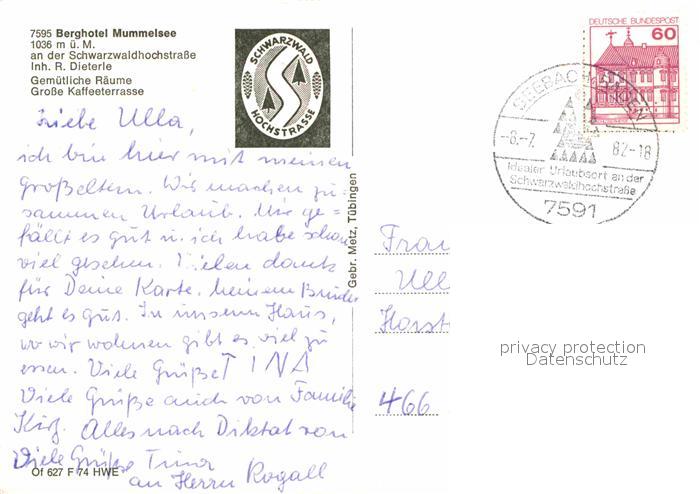 7595 Berghotel Mummelsee
1036 m ü. M.
an der Schwarzwaldhochstraße
Inh. R. Dieterle
Gemütliche Räume
Große Kaffeeterrasse
SCHWARZWALD
HOCHSTRASSE
DEUTSCHE BUNDESPOST
60
SEEBACH BADEN
-8.-7. 82-18
Idealer Urlaubsort an der
Schwarzwaldhochstraße
7591
Liebe Ulla,
ich bin hier mit meinen
Großeltern. Wir machen zu-
sammen Urlaub. Mir ge-
fällt es gut u. ich habe schon
viel gesehen. Vielen dank
für Deine Karte. meinem Bruder
geht es gut. In unserm Haus,
wo wir wohnen gibt es viel zu
essen. Viele Grüße TINA
Viele Grüße auch von Familie
Alles nach Diktat von
Viele Grüße Tina
an Herrn Rogall
Gebr. Metz, Tübingen
Frau
Ull
Horst
466
privacy protection
Datenschutz
Of 627 F 74 HWE